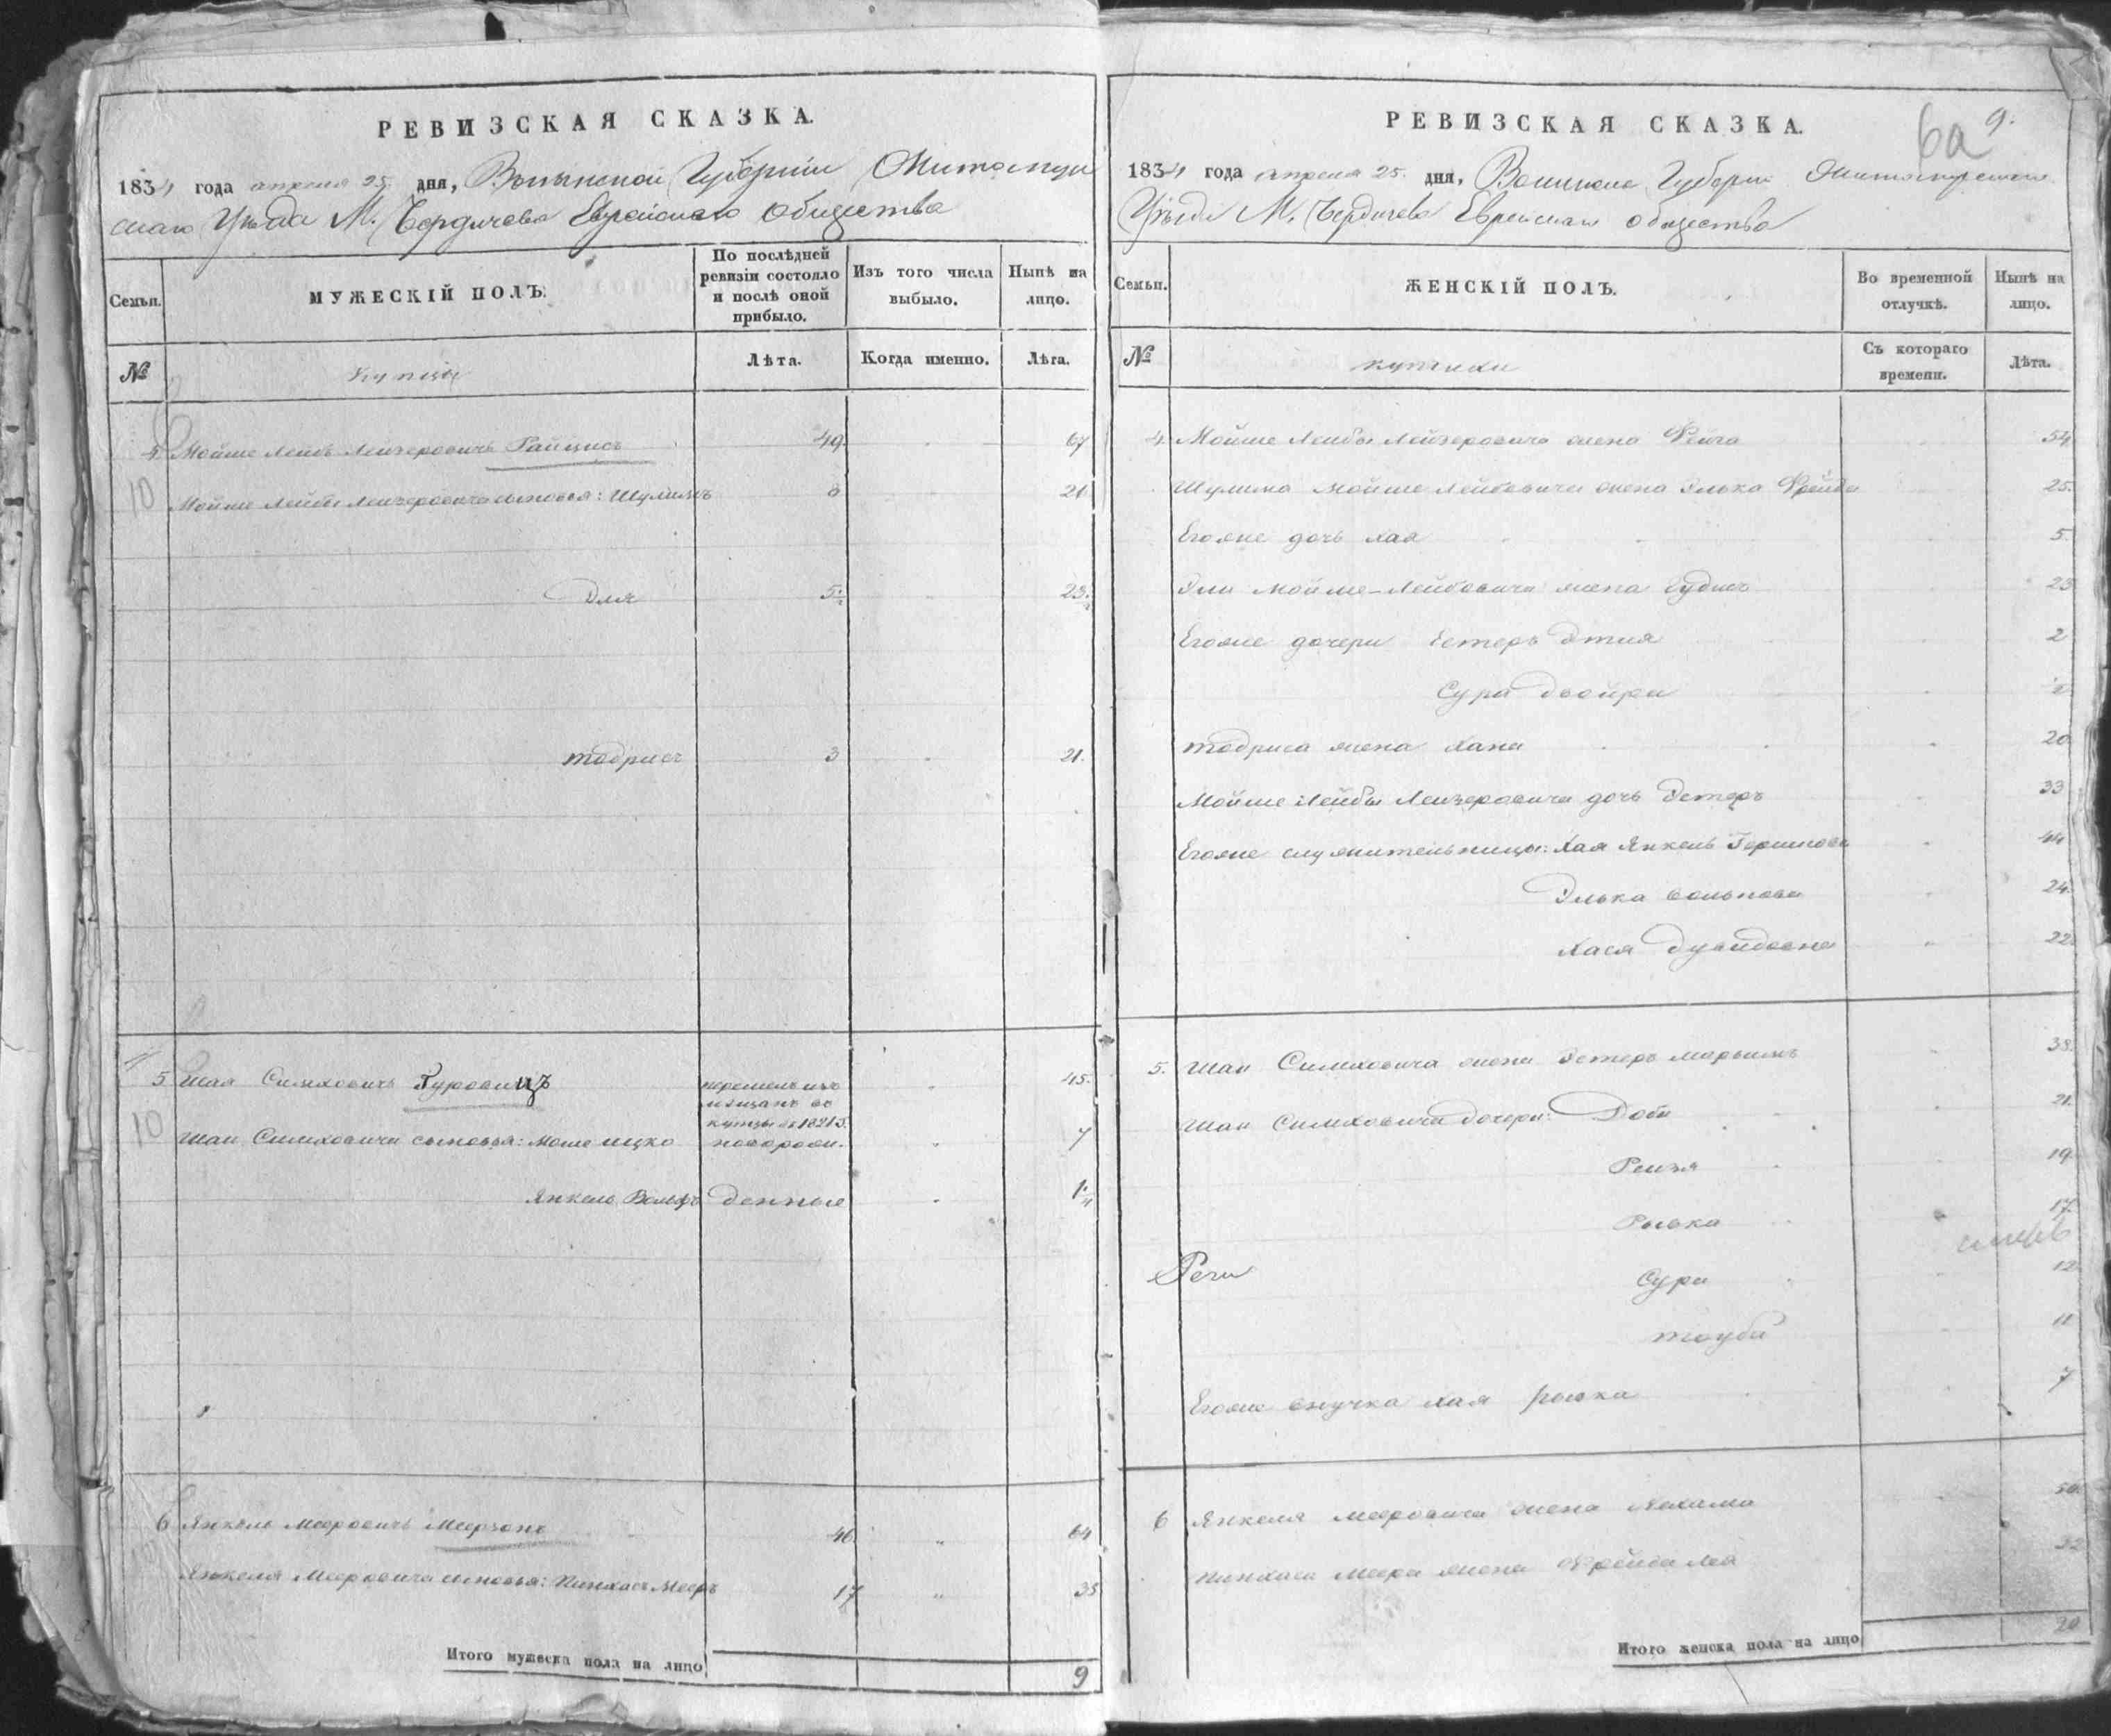 РЕВИЗСКАЯ СКАЗКА.
1834 года апреля 25 дня, Волынской Губернии Житомир
скаго Уѣзда М. Бердичева Еврейскаго общества
Семьи.
МУЖЕСКІЙ ПОЛЪ.
По послѣдней ревизіи состояло и послѣ оной прибыло.
Изъ того числа выбыло.
Нынѣ на лицо.
№
Купцы
Лѣта.
Когда именно.
Лѣта.
4 Мойше Лейбъ Лейзеровичъ Райцисъ 49 67
10 Мойше Лейбы Лейзеровича сыновья: Шулимъ 8 26
Эля 5½ 23½
Тодрисъ 3 21.
11
5 Шая Симховичъ Гуровицъ перешелъ изъ мещанъ въ купцы въ 45.
10 Шаи Симховича сыновья: Мошко Ицко новорож- 7
Янкель Вольфъ денные 1¼
6 Янкель Мееровичъ Меерзонъ 46 „ 64
Янкеля Мееровича сыновья: Пинхасъ Мееръ 17 „ 35
Итого мужеска пола на лицо 9
РЕВИЗСКАЯ СКАЗКА.
6а 9.
1834 года апреля 25. дня, Волынско Губерни Житомирскаго
Уѣзда М. Бердичева Еврейскаго общества
Семьи.
ЖЕНСКІЙ ПОЛЪ.
Во временной отлучкѣ.
Нынѣ на лицо.
№
купчихи
Съ котораго времени.
Лѣта.
4. Мойше Лейбы Лейзеровича жена Фейга 54
Шулима Мойше Лейбовича жена Элька Фрейда 25.
Егоже дочь Хая 5.
Эли Мойше-Лейбовича жена Гудись 23
Егоже дочери Естеръ Этля 2
Сура Двойра ½
Тодриса жена Хана 20
Мойше Лейбы Лейзеровича дочь Эстеръ 33
Егоже служительницы: Хая Янкель Гершкова 44
Элька Вольпова 24.
Хася Дувидовна 22.
5. Шаи Симховича жена Эстеръ Марьимъ 38.
Шаи Симховича дочери: Доба 21.
Рейзя 19
Рывка 17.
Сура 12
Тауба 11
Егоже внучка Хая Рывка 7
6 Янкеля Мееровича жена Нехама 50
Пинхаса Меера жена Фрейда Лея 32
Итого женска пола на лицо 20